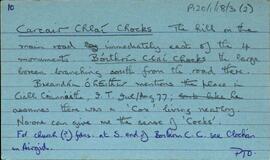 10
P20/1/18/3 (2)
Carcair Chlaí Chocks The hill on the
main road immediately east of the 4
monuments. Bóithrín Chlaí Chocks the large
boreen branching south from the road there.
Breandán Ó hEithir mentions the place in
Cill Cuimnithe, I.T. 77; like he
assumes there was a 'Cox' living nearby
No one can give me the sense of 'Cocks'.
For church (?) fdns. at S. end of Boreen C. C. see Clochán
in Airgid.
PTO.